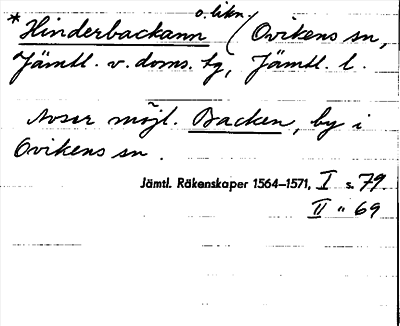 o.likn.
*Hinderbackann (Ovikens sn,
Jämtl. v. doms. tg, Jämtl. l.
Avser möjl. Backen, by i
Ovikens sn.
Jämtl. Räkenskaper 1564–1571, I s. 79
II " 69